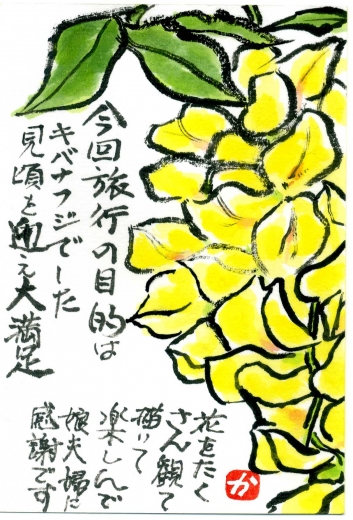 今回旅行の目的は
キバナフジでした
見頃も迎え大満足
花をたく
さん観て
描いて
楽しんで
娘夫婦に
感謝です
か